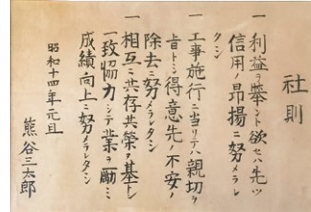 社則
一 利益ヲ挙ント欲セハ先ツ
信用ノ昂揚ニ努メラレ
タシ
一 工事施行ニ当リテハ親切ヲ
旨トシ得意先ノ不安ノ
除去ニ努メラレタシ
一 相互ニ共存共栄ヲ基トシ
一致協力シテ業ヲ励ミ
成績向上ニ努メラレタシ
昭和十四年元旦
熊谷三太郎